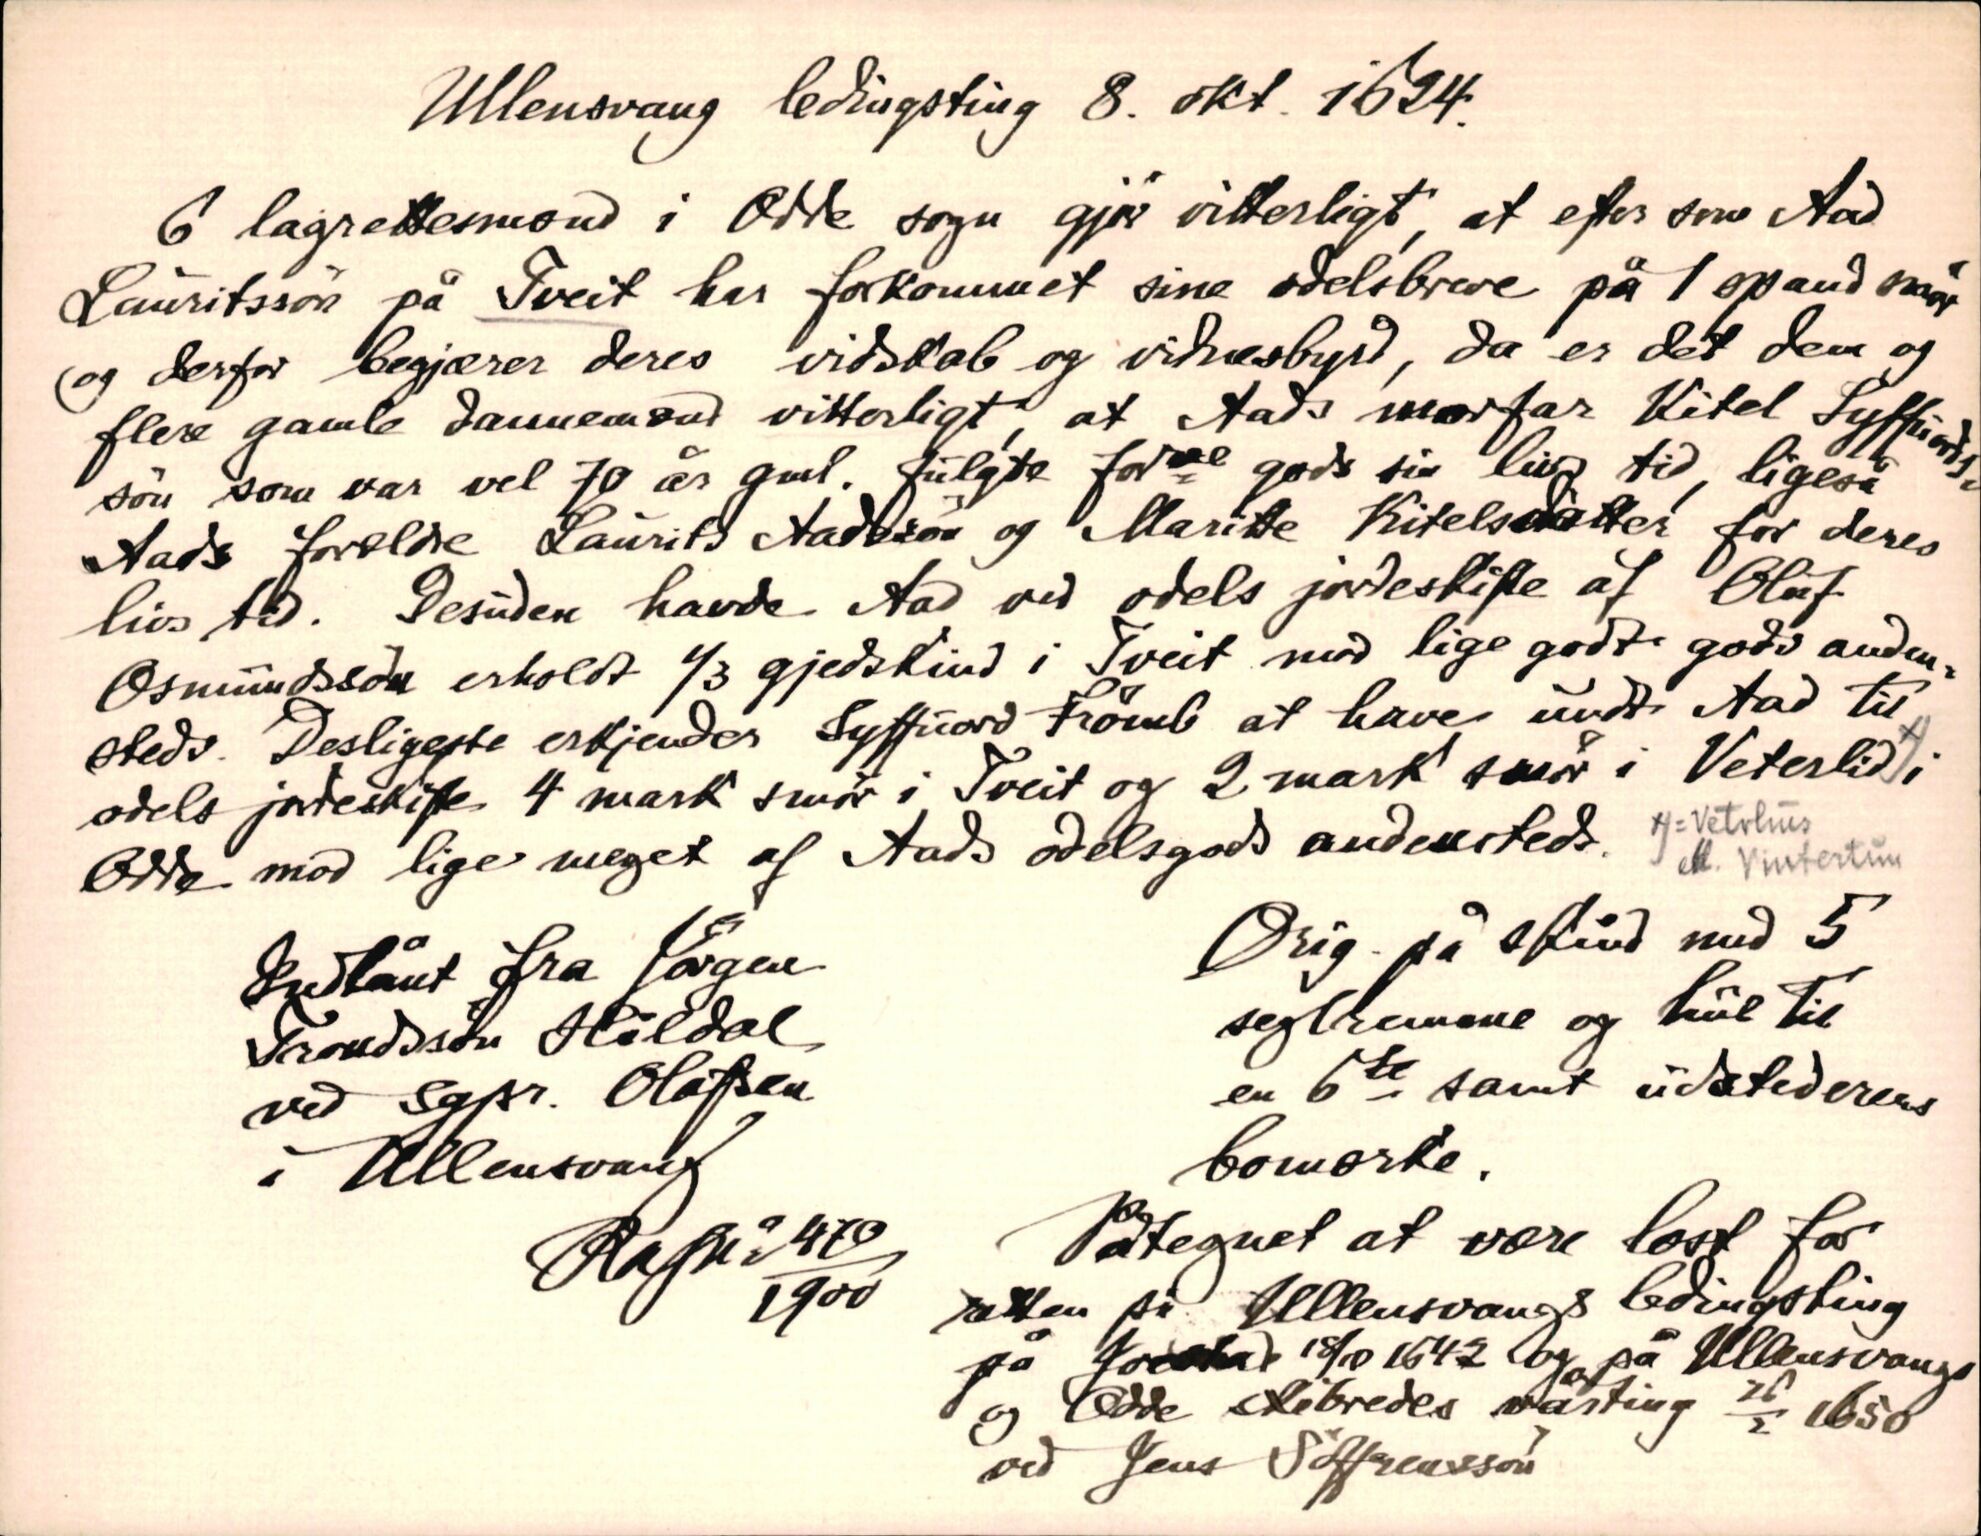 Ullensvang ledingsting 8. okt. 1624.
6 lagrettesmænd i Odde sogn gjör vitterligt, at efter som Aad
Lauritssön på Tveit har forkommet sine odelsbreve på 1 spand smör
og derfor begjærer deres vidskab og vidnesbyrd, da er det dem og
flere gamle dannemænd vitterligt, at Aads morfar Kitel Syffuords-
sön som var vel 70 år gml. fulgte forne gods sin livs tid, ligeså
Aads forældre Laurits Aadssön og Maritte Kitelsdatter for deres
livs tid. Desuden havde Aad ved odels jordeskifte af Oluf
Osmundssön erholdt 1/3 gjedskind i Tveit mod lige godt gods anden-
steds. Desligeste erkjender Syffuord Frömb at have undt Aad til
odels jordeskifte 4 mark smör i Tveit og 2 mark smör i Veterlid x) i
Odde mod lige meget af Aads odelsgods andensteds.
x) = Vetrhus
ell. Vintertun
Indlånt fra Jörgen
Trondssön Hildal
ved sgpr. Olafsen
i Ullensvang
RA jn. 470
1900
Orig. på skind med 5
seglremme og hul til
en 6te samt udstederens
bomærke.
Påtegnet at være læst for
retten på Ullensvangs ledingsting
på 18/10 1642 og på Ullensvangs
og Odde skibredes vårting 26/2 1650
ved Jens Söffrenssön